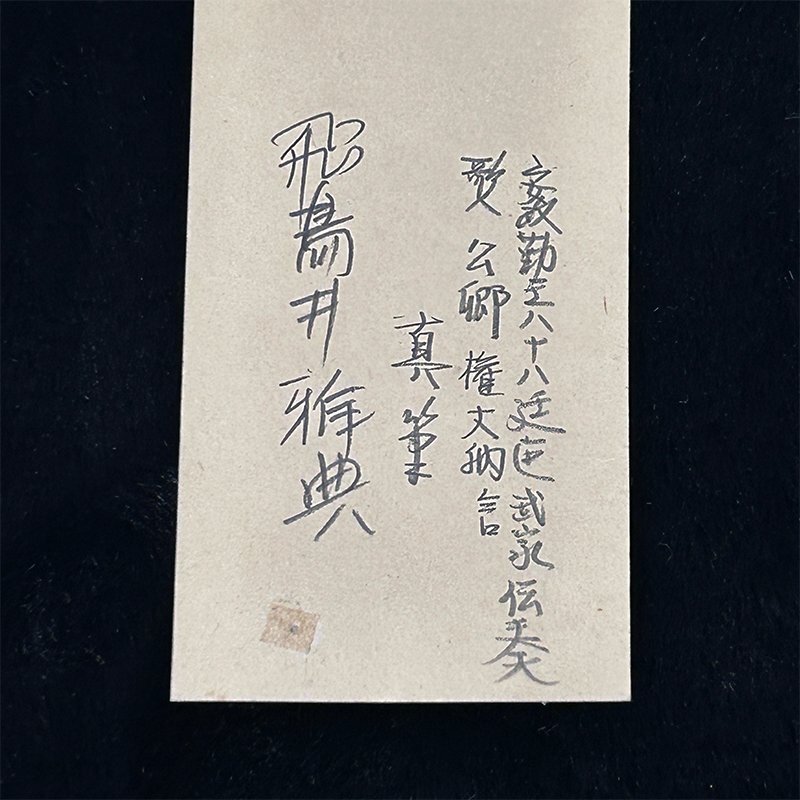 安政勤王八十八廷臣武家伝奏
歌人 公卿 權大納言
真筆
飛鳥井雅典